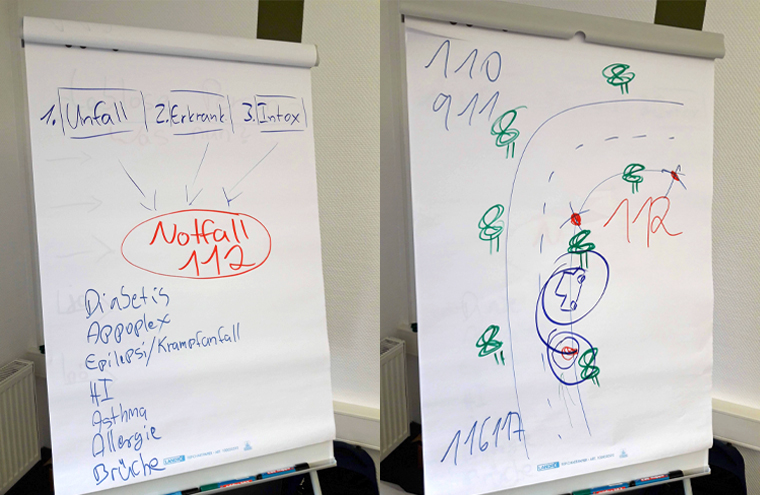 1. Unfall 2. Erkrank 3. Intox
Notfall
112
Diabetis
Appoplex
Epilepsi/Krampfanfall
HI
Asthma
Allergie
Brüche
110
911
112
116117